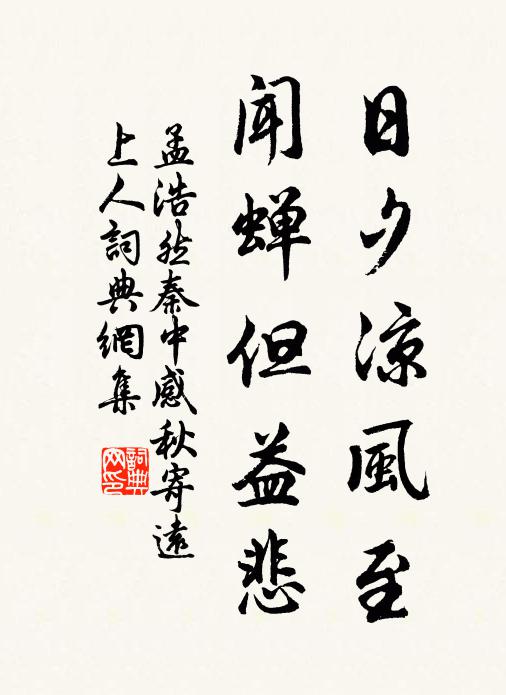 日夕涼風至
聞蟬但益悲
孟浩然秦中感秋寄遠
上人詞典網集
詞典
网印